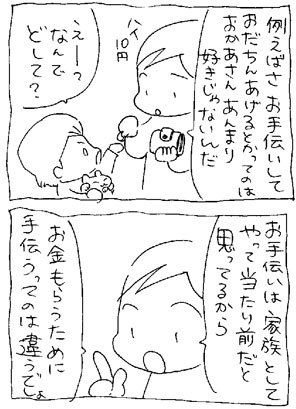 例えばさ お手伝いして
おだちんあげるとかってのは
おかあさん あんまり
好きじゃないんだ
ハイ
10円
えーーっ
なんで
どして?
お手伝いは 家族として
やって当たり前だと
思ってるから
お金もらうために
手伝うってのは違うでしょ